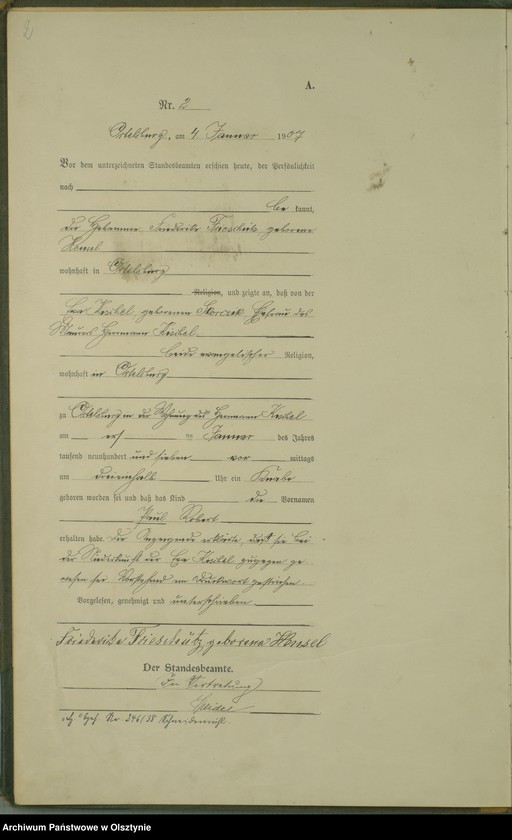 2
A.
Nr. 2
Ortelsburg, am 4 Januar 1907
Vor dem unterzeichneten Standesbeamten erschien heute, der Persönlichkeit
nach
be kannt,
die Hebamme Friederike geborene
Hensel
wohnhaft in Ortelsburg
Religion, und zeigte an, daß von der
geborenen Ehefrau des
Hermann
beide evangelischer Religion,
wohnhaft in Ortelsburg
zu Ortelsburg in der Wohnung des Hermann
am ten Januar des Jahres
tausend neunhundert und sieben vor mittags
um Uhr ein Knabe
geboren worden sei und daß das Kind die Vornamen
Paul Robert
erhalten habe. Die erklärte, daß sie bei
der Niederkunft der zugegen ge-
wesen sei. Vorstehend ein Druckwort gestrichen.
Vorgelesen, genehmigt und unterschrieben
Friederike geborene Hensel
Der Standesbeamte.
In Vertretung
Nr. 246/38
Archiwum Państwowe w Olsztynie